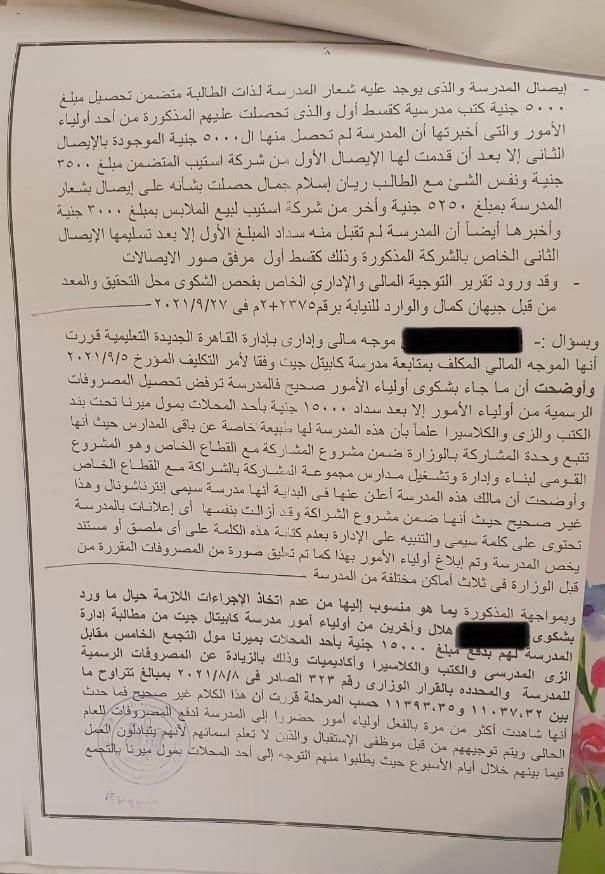 ٨
- إيصال المدرسة والذى يوجد عليه شعار المدرسة لذات الطالبة متضمن تحصيل مبلغ
٥٠٠٠ جنية كتب مدرسية كقسط أول والذى تحصلت عليهم المذكورة من أحد أولياء
الأمور والتى أخبرتها أن المدرسة لم تحصل منها ال٥٠٠٠ جنية الموجودة بالإيصال
الثانى إلا بعد أن قدمت لها الإيصال الأول من شركة استيب المتضمن مبلغ ٣٥٠٠
جنية ونفس الشئ مع الطالب ريان إسلام جمال حصلت بشأنه على إيصال بشعار
المدرسة بمبلغ ٥٢٥٠ جنية وأخر من شركة استيب لبيع الملابس بمبلغ ٣٠٠٠ جنية
وأخبرها أيضاً أن المدرسة لم تقبل منه سداد المبلغ الأول إلا بعد تسليمها الإيصال
الثانى الخاص بالشركة المذكورة وذلك كقسط أول مرفق صور الايصالات
- وقد ورود تقرير التوجية المالى والإداري الخاص بفحص الشكوى محل التحقيق والمعد
من قبل جيهان كمال والوارد للنيابة برقم٢٣٧٥+٢م فى ٢٠٢١/٩/٢٧
وبسؤال :- موجه مالى وإدارى بإدارة القاهرة الجديدة التعليمية قررت
أنها الموجه المالي المكلف بمتابعة مدرسة كابيتل جيت وفقا لأمر التكليف المؤرخ ٢٠٢١/٩/٥
وأوضحت أن ما جاء بشكوى أولياء الأمور صحيح فالمدرسة ترفض تحصيل المصروفات
الرسمية من أولياء الأمور إلا بعد سداد ١٥٠٠٠ جنية بأحد المحلات بمول ميرنا تحت بند
الكتب والزى والكلاسيرا علماً بأن هذه المدرسة لها طبيعة خاصة عن باقى المدارس حيث أنها
تتبع وحدة المشاركة بالوزارة ضمن مشروع المشاركة مع القطاع الخاص وهو المشروع
القومى لبناء وإدارة وتشغيل مدارس مجموعة المشاركة بالشراكة مع القطاع الخاص
وأوضحت أن مالك هذه المدرسة أعلن عنها فى البداية أنها مدرسة سيمى إنترناشونال وهذا
غير صحيح حيث أنها ضمن مشروع الشراكة وقد أزالت بنفسها أى إعلانات بالمدرسة
تحتوى على كلمة سيمى والتنبيه على الإدارة بعدم كتابة هذه الكلمة على أى ملصق أو مستند
يخص المدرسة وتم إبلاغ أولياء الأمور بهذا كما تم تعليق صورة من المصروفات المقررة من
قبل الوزارة فى ثلاث أماكن مختلفة من المدرسة
وبمواجهة المذكورة بما هو منسوب إليها من عدم اتخاذ الإجراءات اللازمة حيال ما ورد
بشكوى هلال وأخرين من أولياء أمور مدرسة كابيتال جيت من مطالبة إدارة
المدرسة لهم بدفع مبلغ ١٥٠٠٠ جنية بأحد المحلات بميرنا مول التجمع الخامس مقابل
الزى المدرسى والكتب والكلاسيرا وأكاديميات وذلك بالزيادة عن المصروفات الرسمية
للمدرسة والمحدده بالقرار الوزارى رقم ٣٢٣ الصادر فى ٢٠٢١/٨/٨ بمبالغ تتراوح ما
بين ١١٠٣٧.٣٢ و١١٣٩٣.٣٥ حسب المرحلة قررت أن هذا الكلام غير صحيح فما حدث
أنها شاهدت أكثر من مرة بالفعل أولياء أمور حضروا إلى المدرسة لدفع المصروفات للعام
الحالى ويتم توجيههم من قبل موظفى الإستقبال والذين لا تعلم اسمائهم لأنهم يتبادلون العمل
فيما بينهم خلال أيام الأسبوع حيث يطلبوا منهم التوجه إلى أحد المحلات بمول ميرنا بالتجمع